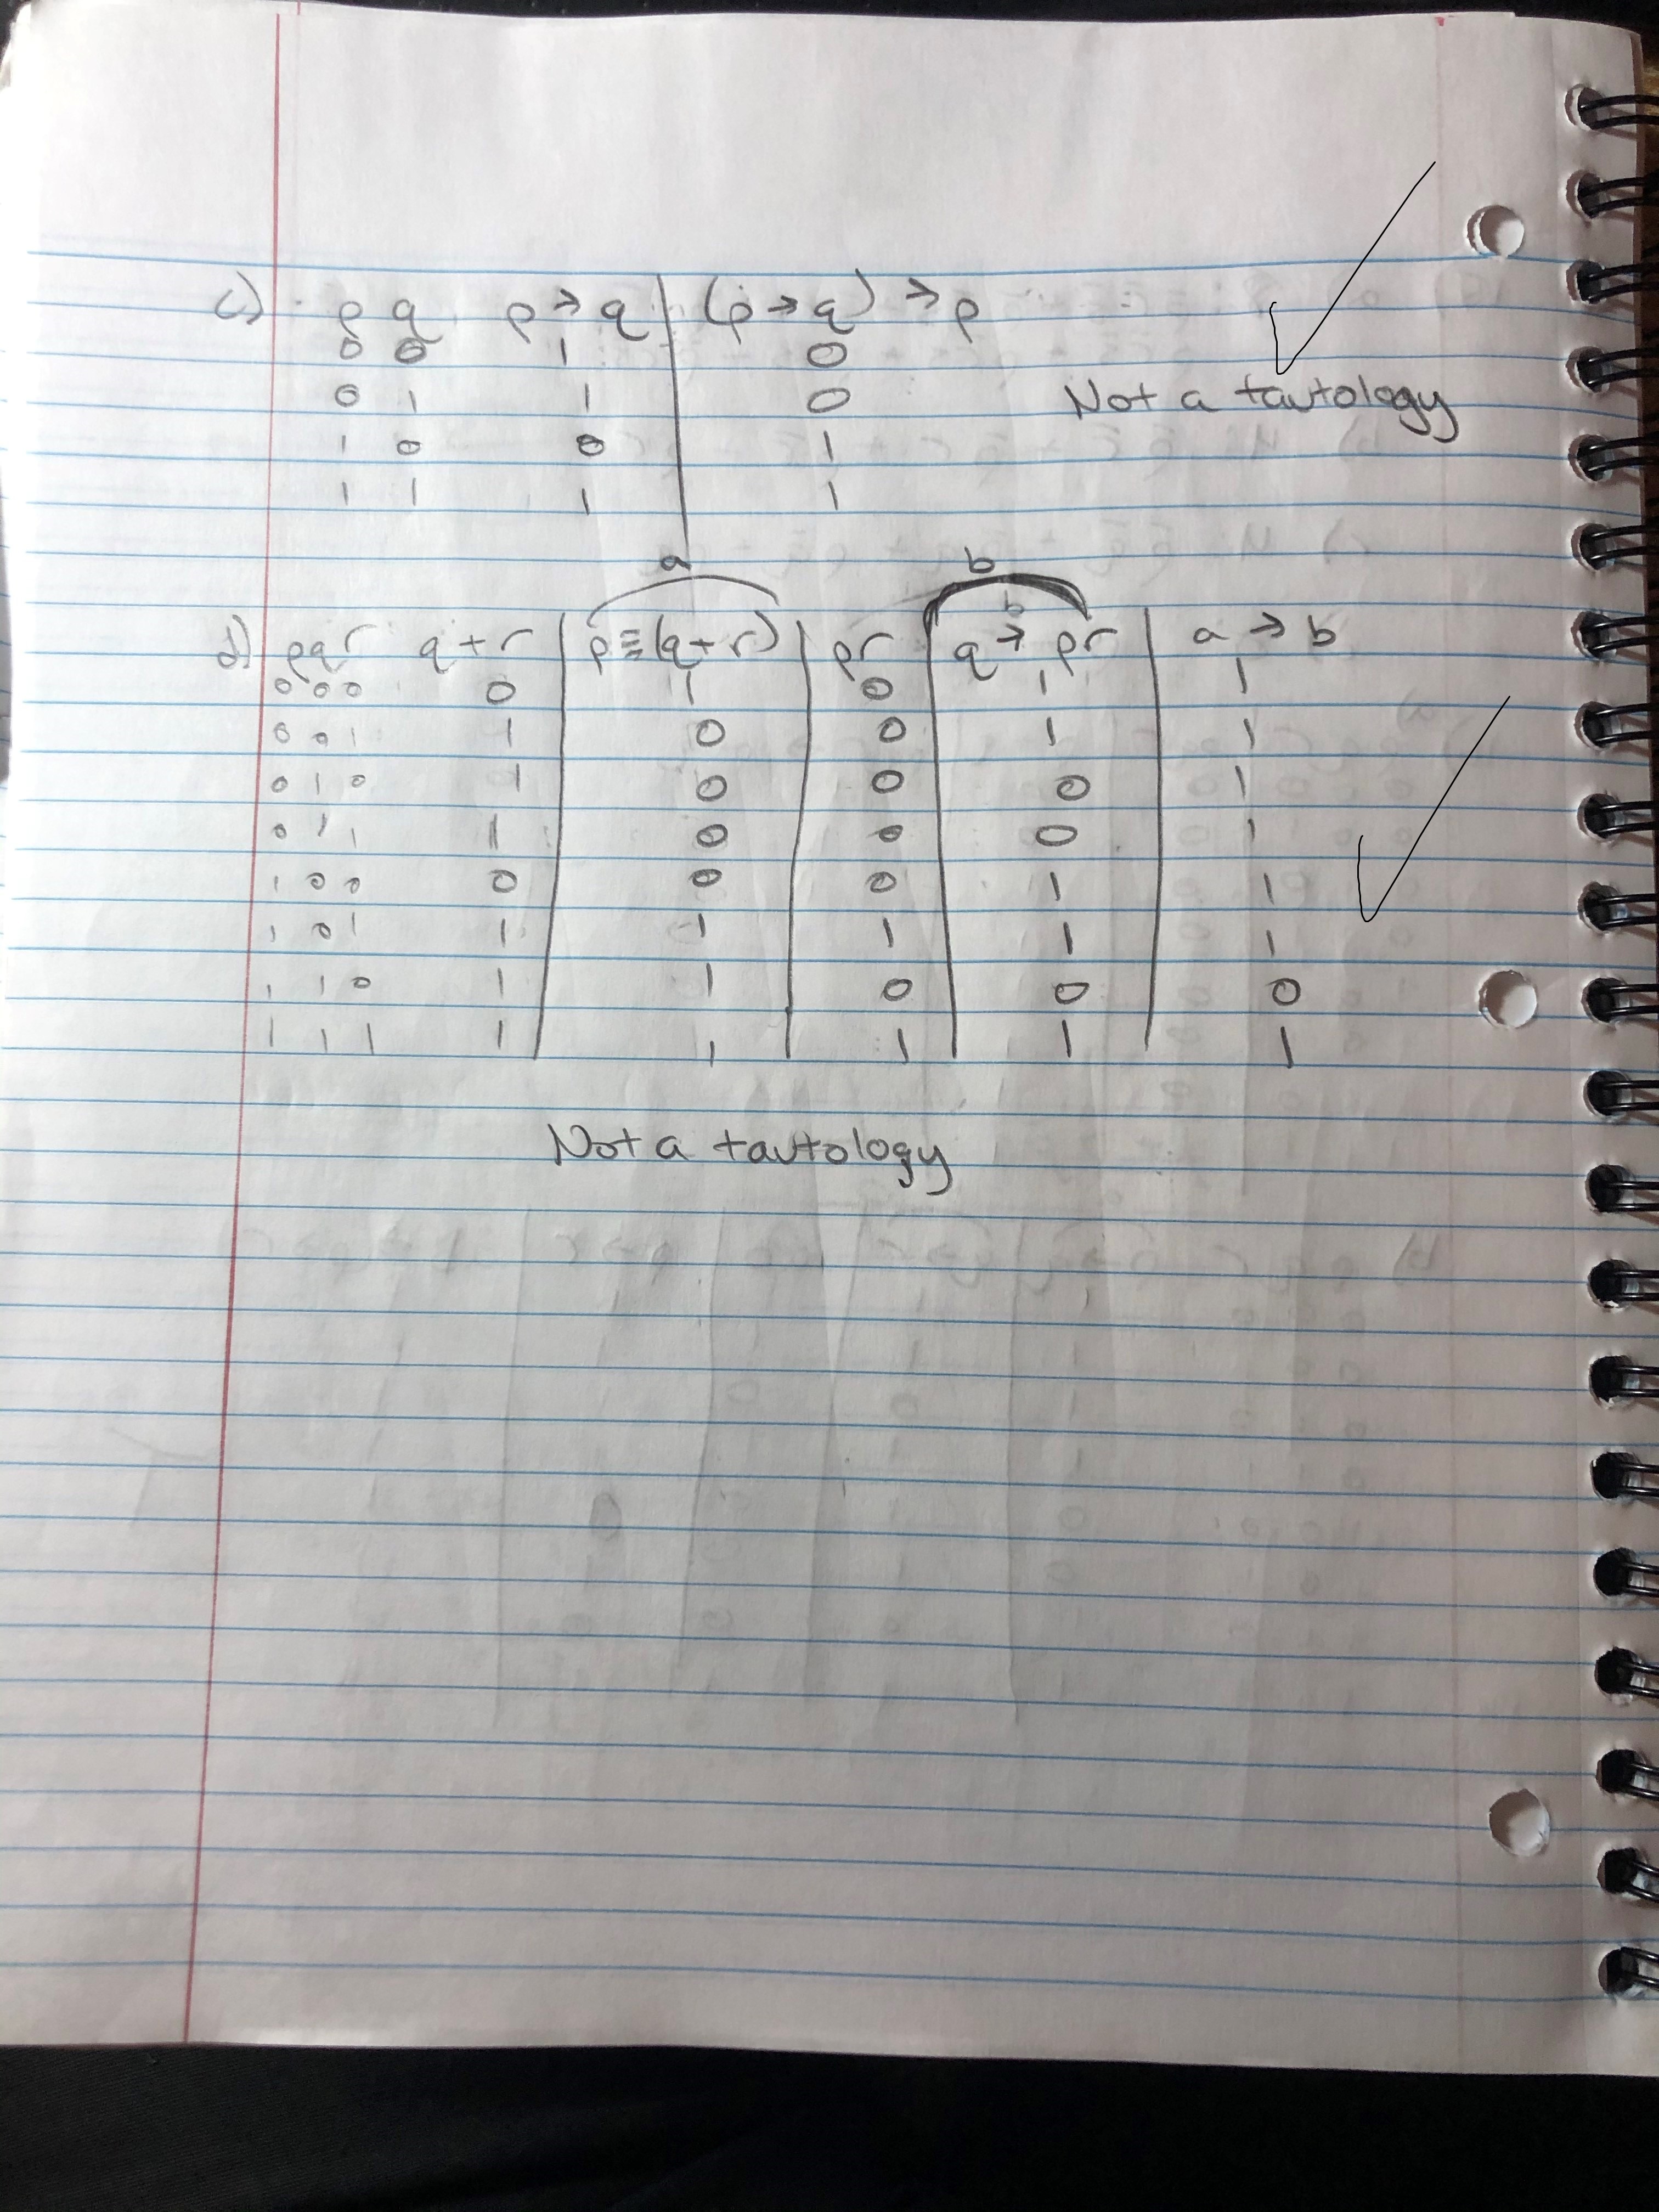 c) p q p → q (p → q) → p
0 0 1 0
0 1 1 0 Not a tautology
1 0 0 1
1 1 1 1
a b
b
d) p q r q + r p ≡ (q + r) pr q → pr a → b
0 0 0 0 1 0 1 1
0 0 1 1 0 0 1 1
0 1 0 1 0 0 0 1
0 1 1 1 0 0 0 1
1 0 0 0 0 0 1 1
1 0 1 1 1 1 1 1
1 1 0 1 1 0 0 0
1 1 1 1 1 1 1 1
Not a tautology